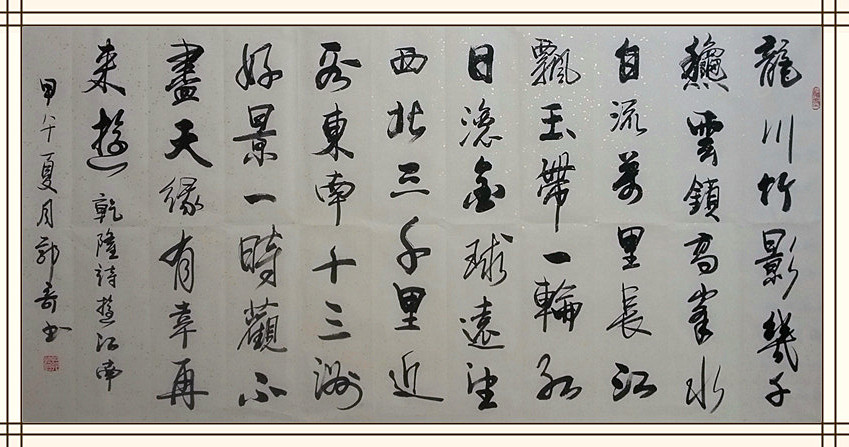 龍川竹影幾千
龝雲鎖高峯水
自流萬里長江
飄玉帶一輪紅
日滚金球遠望
西北三千里近
看東南十三洲
好景一時觀不
盡天緣有幸再
来遊 乾隆詩遊江南
甲午夏月郭奇书